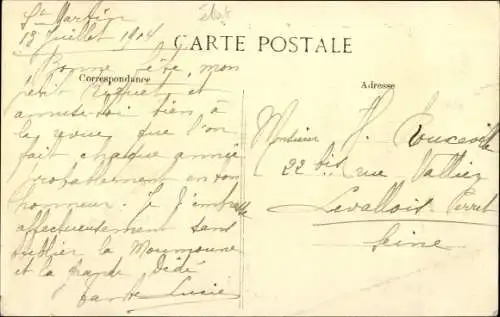 St Martin
13 Juillet 1914
CARTE POSTALE
Correspondance
Adresse
Bonne fête, mon
petit et
amuse-toi bien à
la revue que l'on
fait chaque année
probablement en ton
honneur. Je t'embrasse
affectueusement sans
oublier la Moumoune
et la grande Dédé
tante Lucie
Monsieur H. Rouceville
22 bis rue Vallier
Levallois-Perret
Seine